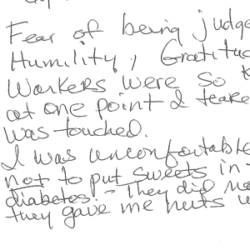 Fear of being judge
Humility, Gratitud
Workers were so k
at one point I teare
was touched.
I was uncomfortable
not to put sweets in
diabetes. They did
they gave me nuts